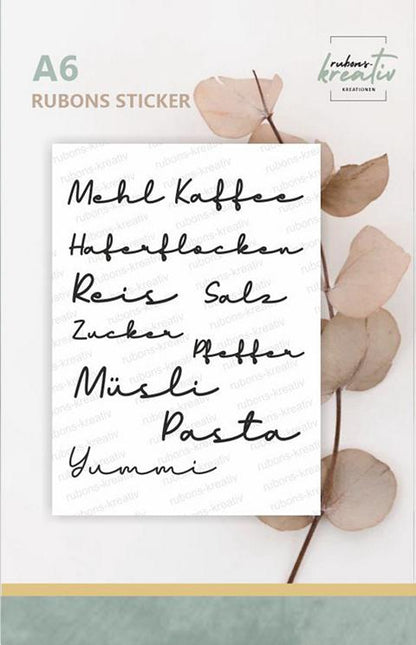 A6
RUBONS STICKER
rubons-
kreativ
KREATIONEN
Mehl Kaffee
Haferflocken
Reis Salz
Zucker
Pfeffer
Müsli
Pasta
Yummi
rubons-kreativ